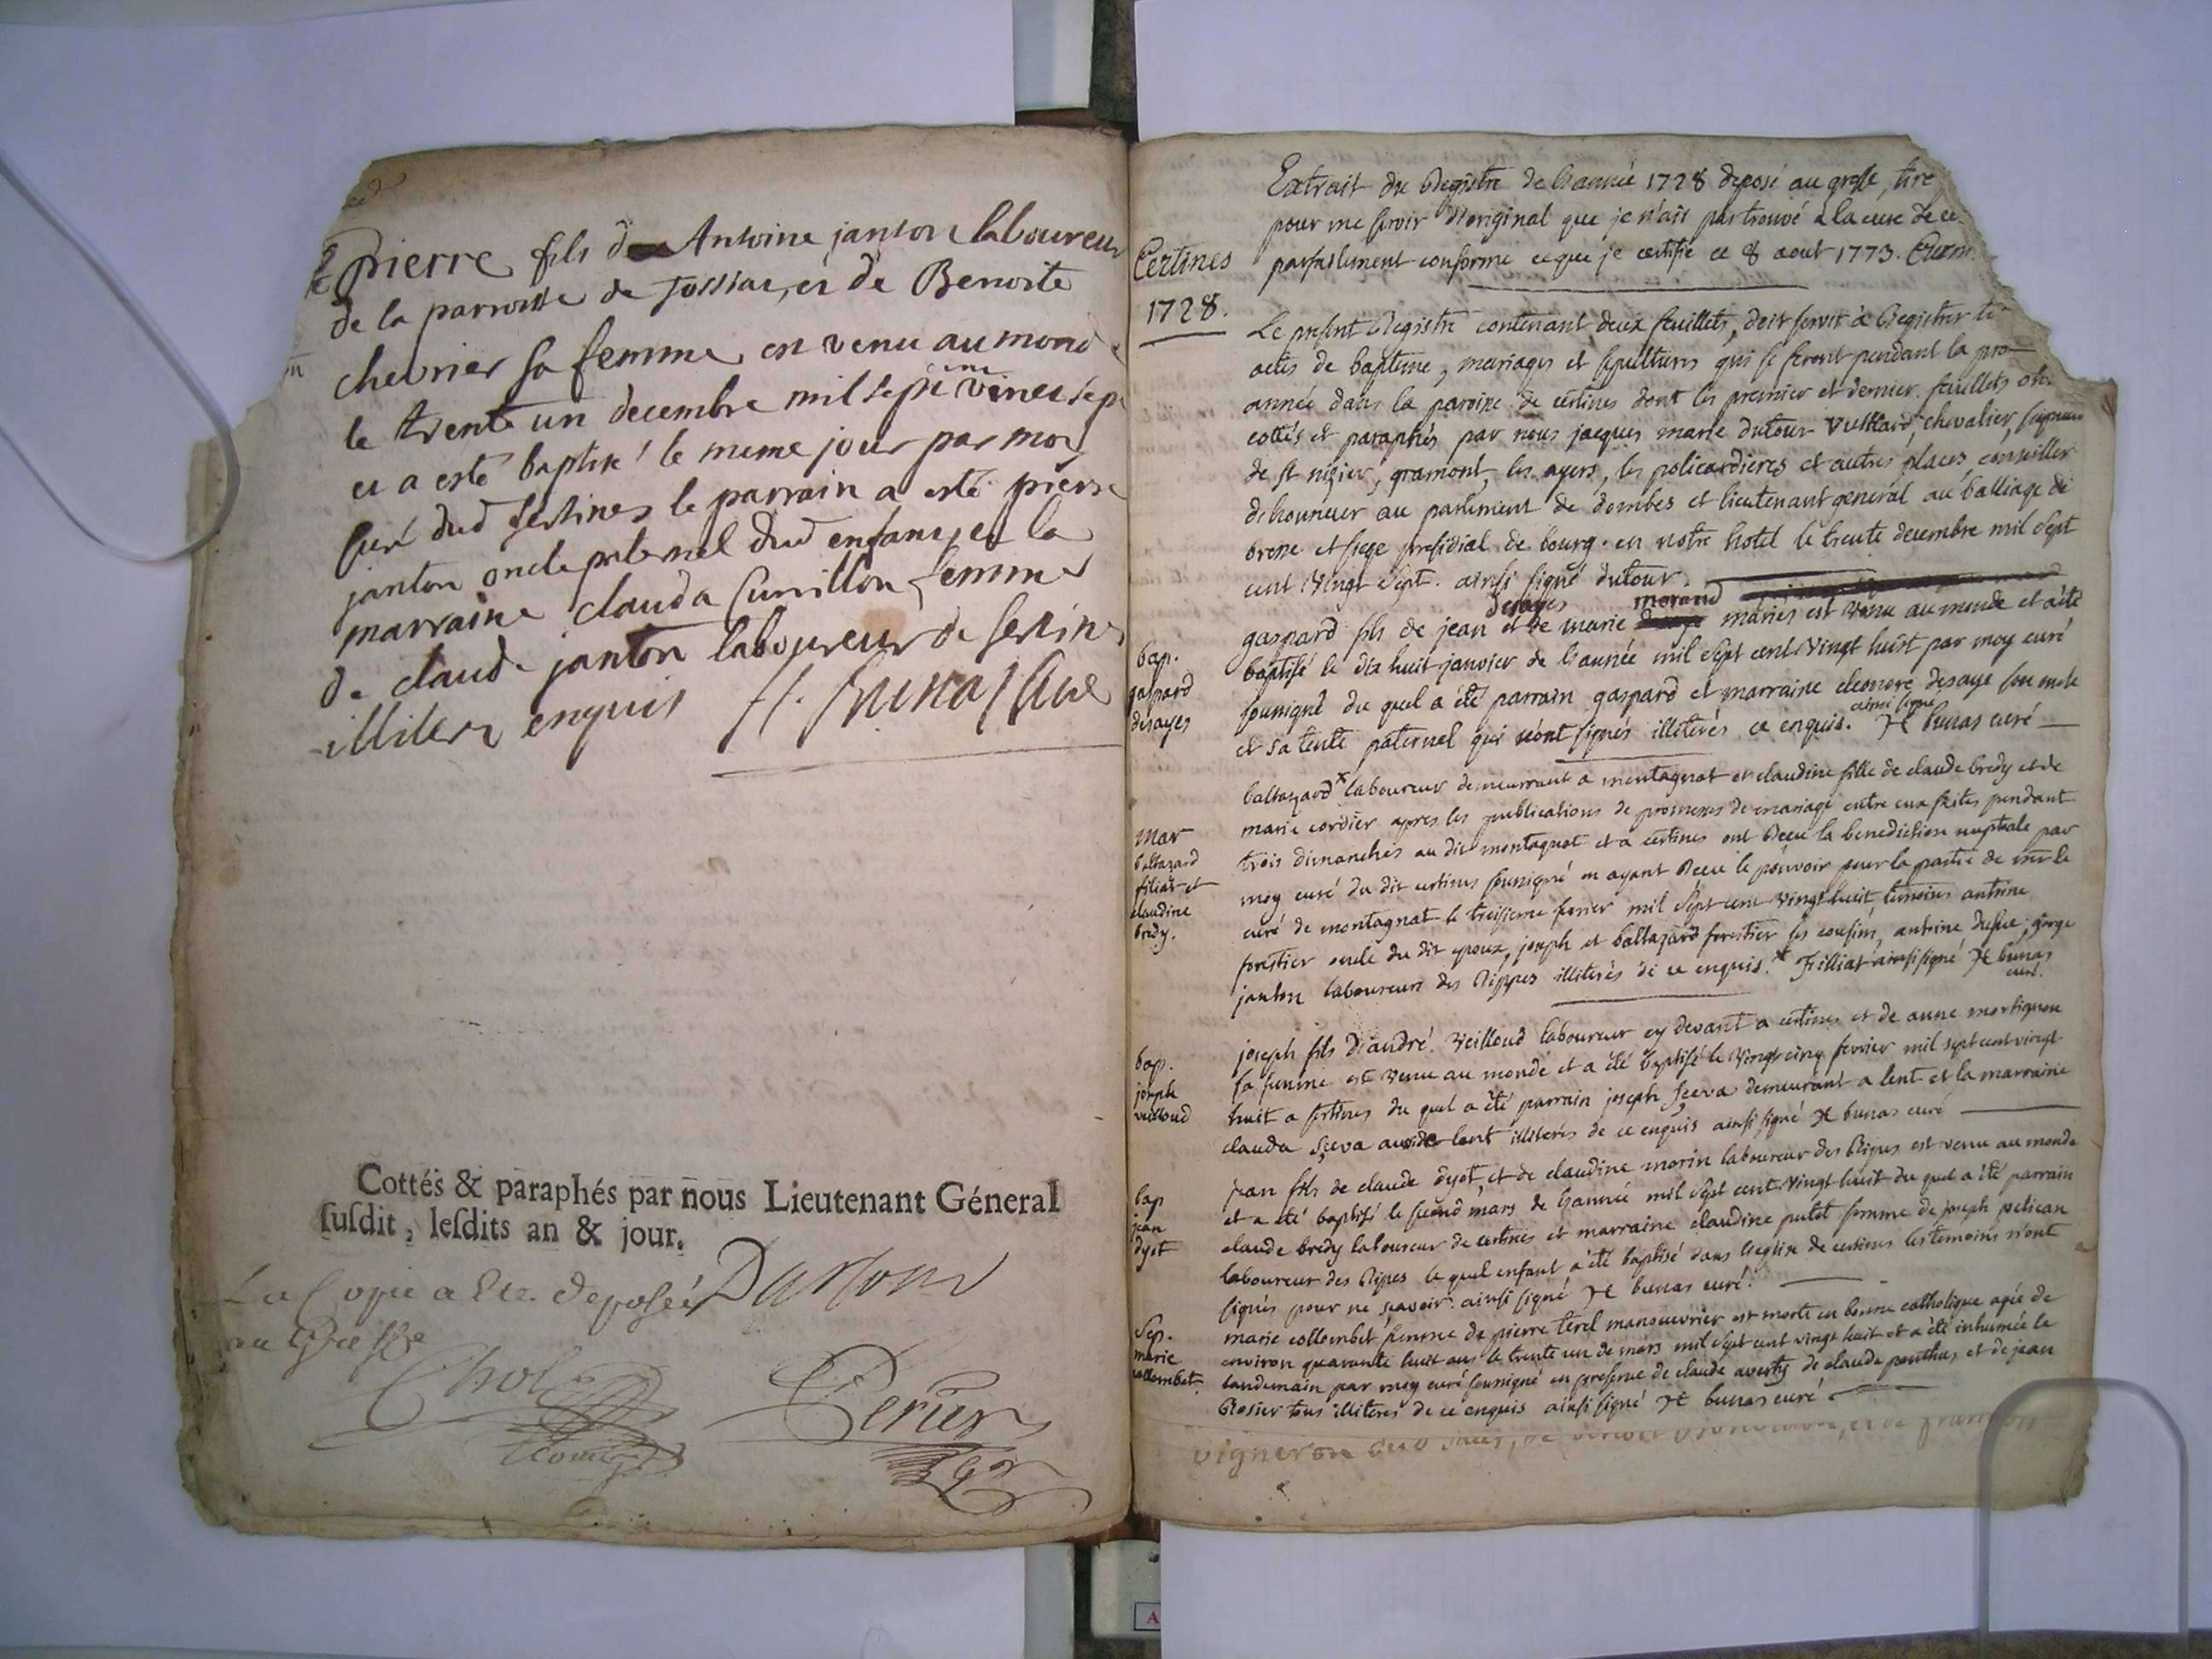 pierre fils de Antoine janton laboureur
de la parroisse de Tossiat, et de Benoite
chevrier sa femme est venu au monde
le trente un decembre mil sept vinct sept
et a esté baptisé le meme jour par moy
curé dud sertines le parrain a esté pierre
janton oncle paternel dud enfant, et la
marraine clauda Curvillon femme
de claude janton laboureur de sertines
illiterez enquis H. Bunas Curé
Cottés & paraphés par nous Lieutenant Géneral
suſdit, leſdits an & jour.
La Copie a Ete deposée Dutour
au Greffe
Perier
Extrait du Registre de l'année 1728 deposé au greffe, tiré
pour me servir d'original que je n'ais pas trouvé a la cure de ce
parfaitement conforme ce que je certifie ce 8 aout 1773.
Certines
1728.
Le present Registre contenant deux feuillets, doit servir à Registrer les
actes de bapteme, mariages et sepultures qui se feront pendant la pro
année dans la paroisse de certines dont les premier et dernier feuillets
cottés et paraphés par nous jacques marie dutour vuillard, chevalier, seigneur
de st nizier, gramont, les ayers, les policardieres et autres places, conseiller
d'honneur au parlement de dombes et lieutenant general au balliage de
bresse et siege presidial de bourg. en notre hotel le trente decembre mil sept
cent vingt sept. ainsi signé dutour.
bap.
gaspard
desayes
gaspard fils de jean desayes et de marie morand mariés est venu au monde et a été
baptisé le dix huit janvier de l'année mil sept cent vingt huit par moy curé
soussigné du quel a été parrain gaspard et marraine eleonore desaye son oncle
et sa tente paternel qui n'ont signés illiterés ce enquis. ainsi signé H bunas curé
mar
baltazard
filiat et
claudine
bredy.
baltazard * laboureur demeurrant a montagnat et claudine fille de claude bredy et de
marie cordier apres les publications de promesses de mariage entre eux faites pendant
trois dimanches au dit montagnat et a certines ont Receu la benediction nuptiale par
moy curé du dit certines soussigné en ayant Receu le pouvoir pour la partie de mr le
curé de montagnat le treisieme fevrier mil sept cent vingt huit temoins antoine
forestier oncle du dit epoux, joseph et baltazard forestier ses cousins, antoine dufue, george
janton laboureurs des Rippes illiterés de ce enquis. * Filliat ainsi signé H bunas
curé.
bap.
joseph
veilloud
joseph fils d'andré veilloud laboureur cy devant a certines et de anne mortignon
sa femme est venu au monde et a été baptisé le vingt cinq fevrier mil sept cent vingt
huit a sertines du quel a été parrain joseph sceva demeurant a lent et la marraine
clauda sceva aussi de lent illiterés de ce enquis ainsi signé H bunas curé
bap
jean
dyot
jean fils de claude dyot, et de claudine morin laboureur des Ripes est venu au monde
et a été baptisé le second mars de l'année mil sept cent vingt huit du quel a été parrain
claude bredy laboureur de certines et marraine claudine putet femme de joseph pelican
laboureur des Ripes le quel enfant a été baptisé dans l'eglise de certines les temoins n'ont
signés pour ne scavoir. ainsi signé H bunas curé.
Sep.
marie
collombet.
marie collombet femme de pierre terel manoeuvrier est morte en bonne catholique agée de
environ quarante huit ans le trente un de mars mil sept cent vingt huit et a été inhumée le
landemain par moy curé soussigné en presence de claude avesty de claude ponthus et de jean
Rosier tous illiteres de ce enquis ainsi signé H bunas curé
vigneron